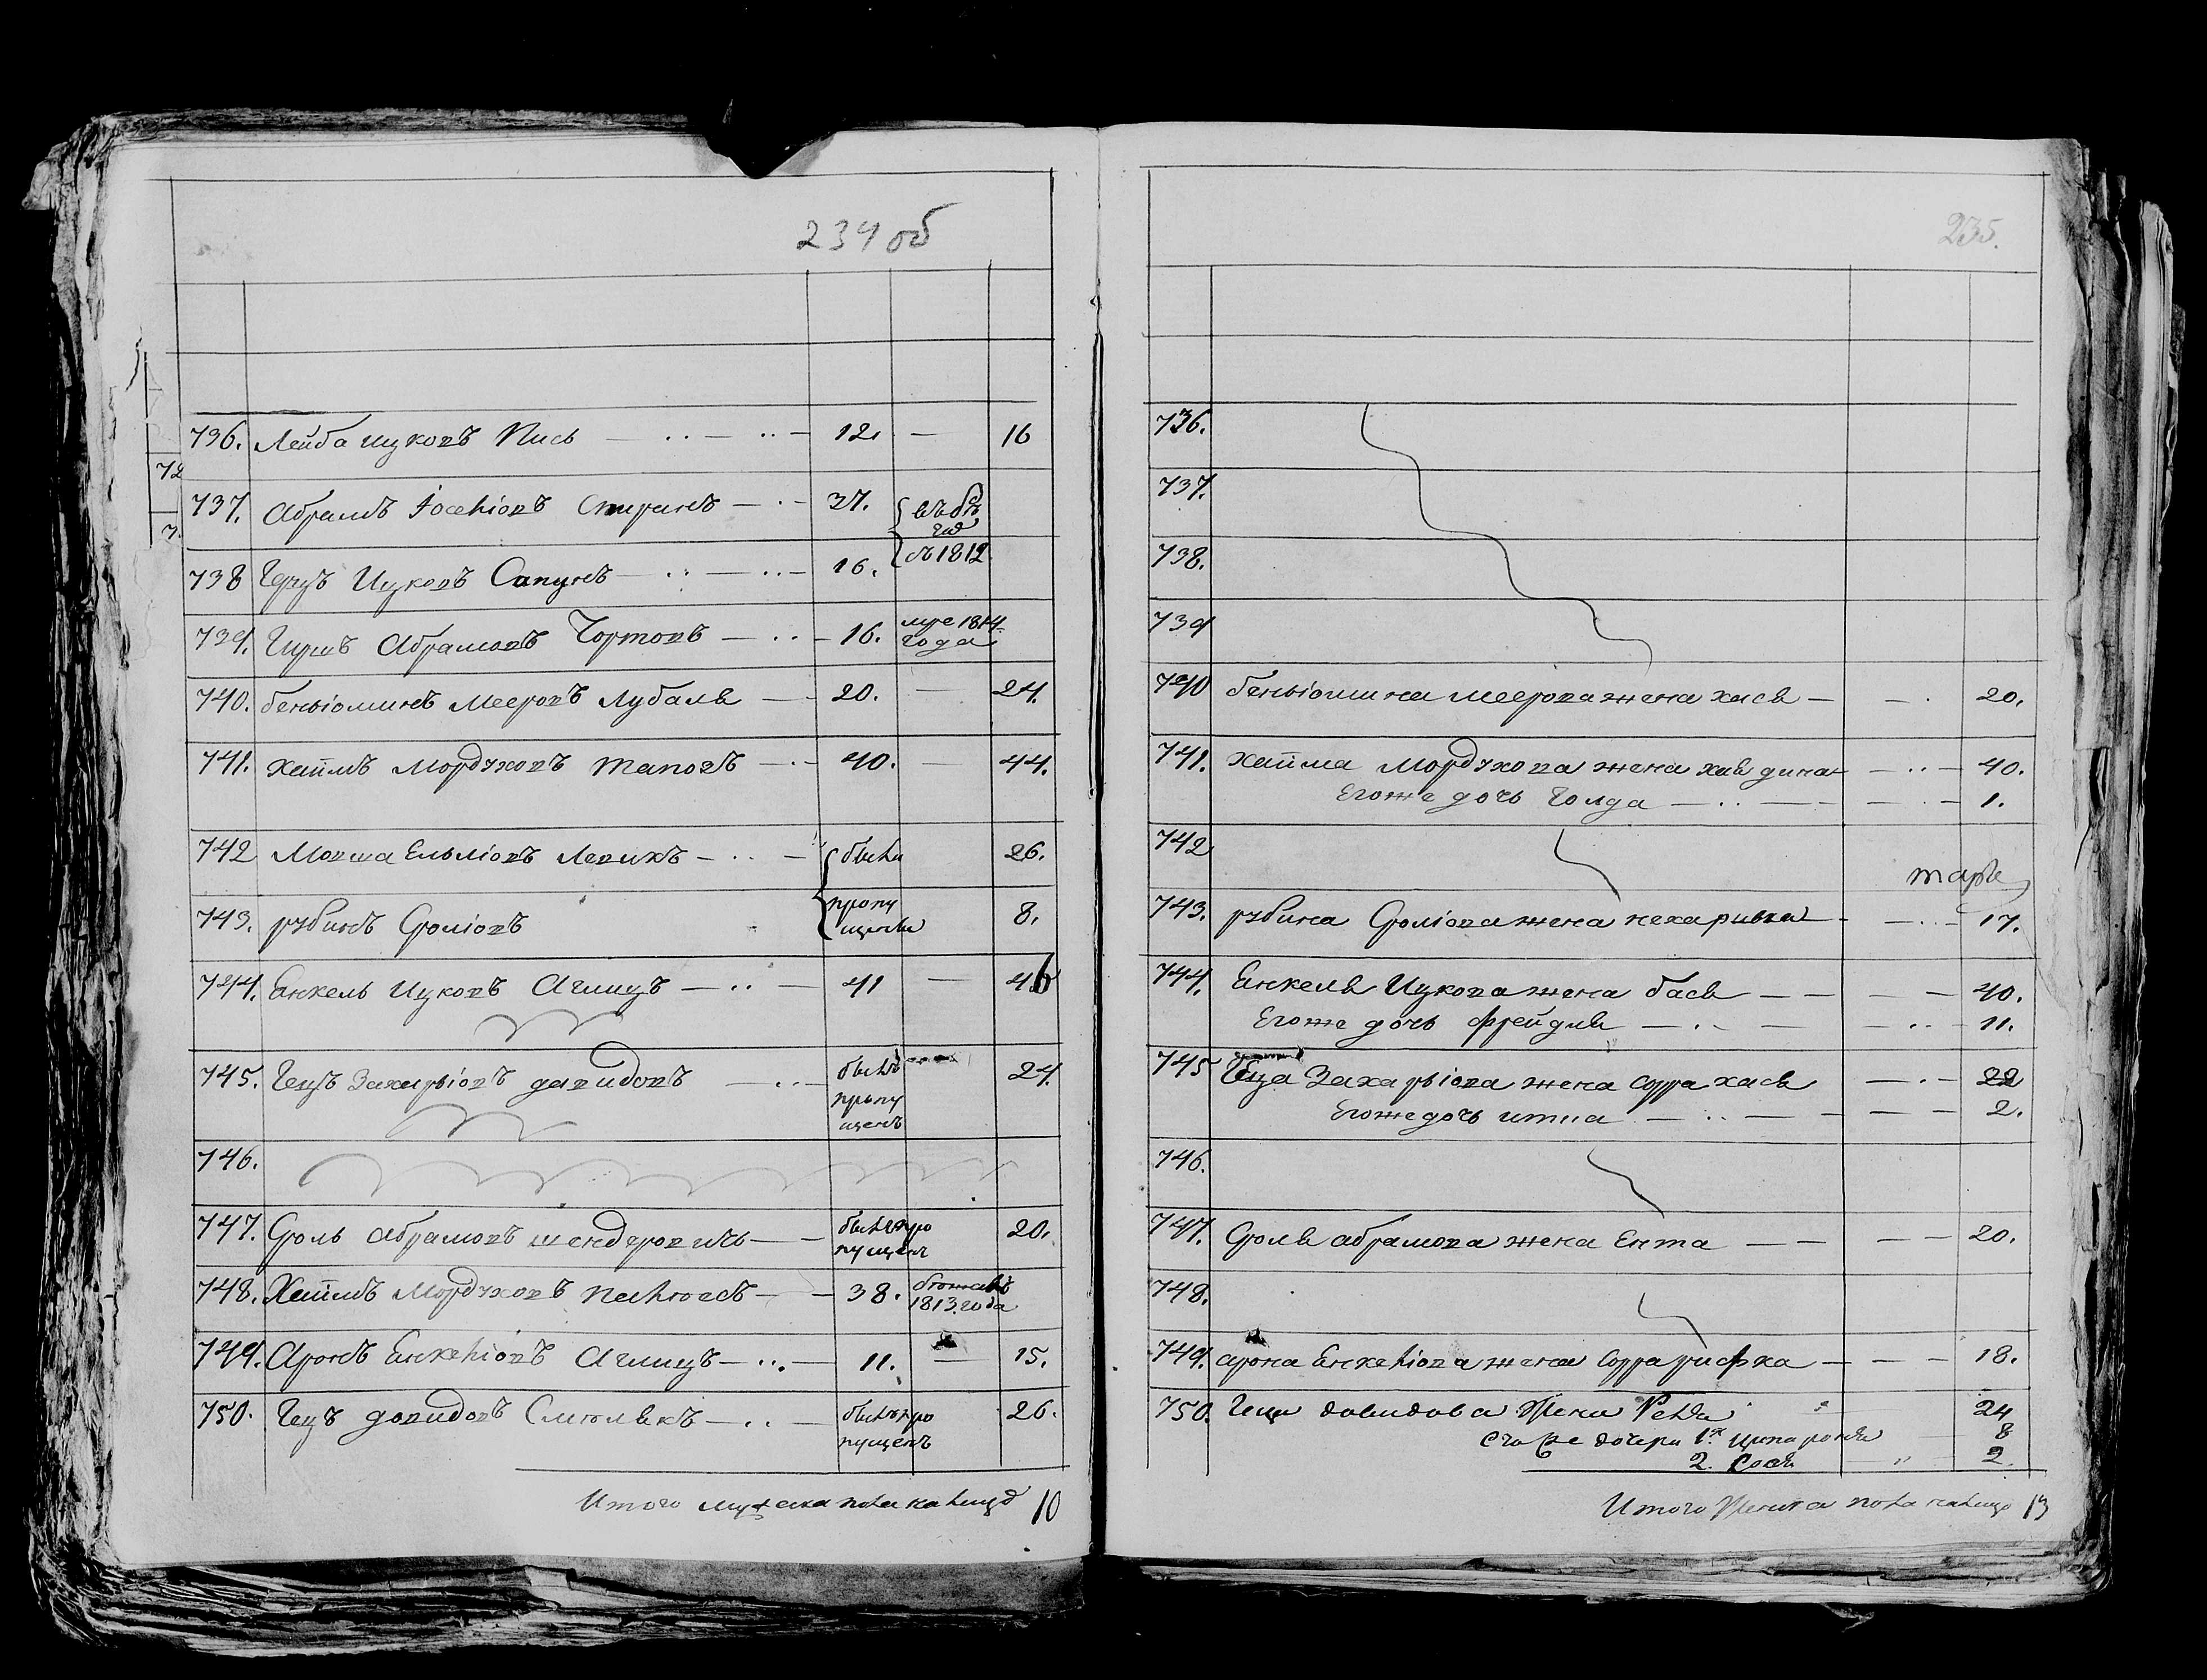 234 об
736. Лейба Ицковъ Пись 12. 16
737. Абрамъ Іоселіовъ Стиранъ 37. въ бѣгахъ
738 Герцъ Ицковъ Сапунъ 16. съ 1812
739. Гиршъ Абрамовъ Чортовъ 16. умре 1814 года
740. беньіоминъ Мееровъ Лубаль 20. 24.
741. хаимъ Мордуховъ таповъ 40. 44.
742 Мовша Ельліовъ Левикъ были 26.
743. рубинъ Сроліовъ пропущены 8.
744. Енкель Ицковъ Аглицъ 41 46
745. Гецъ Захарьіовъ давидовъ былъ пропущенъ 24.
746.
747. Сроль абрамовъ шендеровичъ былъ пропущенъ 20.
748. Хаимъ Мордуховъ 38. бѣжалъ 1813 года
749. Аронъ Енкеліовъ Аглицъ 11. 15.
750. Гецъ давидовъ былъ пропущенъ 26.
Итого мужеска пола налицо 10
235.
736.
737.
738.
739
740 беньіомина меерова жена хася 20.
741. хаима Мордухова жена хая дина 40.
Егоже дочь Голда 1.
742
743. рубина Сроліова жена неха ривка 17.
744. Енкеля Ицкова жена бася 40.
Егоже дочь фрейдля 11.
745 Геца Захарьіова жена сорра хася 22
Егоже дочь итпа 2.
746.
747. Сроля абрамова жена Ента 20.
748.
749. арона Енкеліова жена сорра рифка 18.
750. Геца давидова жена Рейза 24
Его же дочери 1я 8
2. Сося 2.
Итого женска пола налицо 13